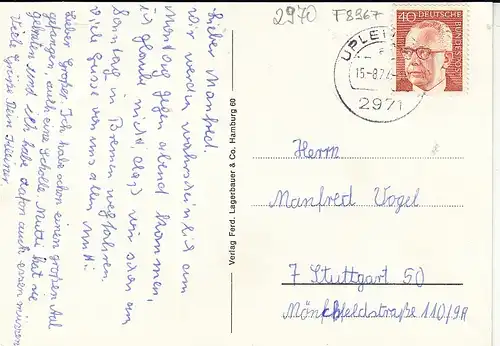 2970 F8967
40 DEUTSCHE BUNDESPOST
UPLEN
15-8.7
2971
Lieber Manfred.
Wir werden wahrscheinlich am
Montag gegen abend kommen,
ich glaube nicht das wir schon am
Sonntag in Bremen wegfahren.
viele Grüsse von uns allen Mutti
Lieber Großer. Ich habe schon einen großen Aal
gefangen, auch eine Scholle. Mutti hat sie
gebraten und ich habe davon auch einen
Viele Grüße Dein
Verlag Ferd. Lagerbauer & Co. Hamburg 60
Herrn
Manfred Vogel
7 Stuttgart 50
Mönchfeldstraße 110/9A